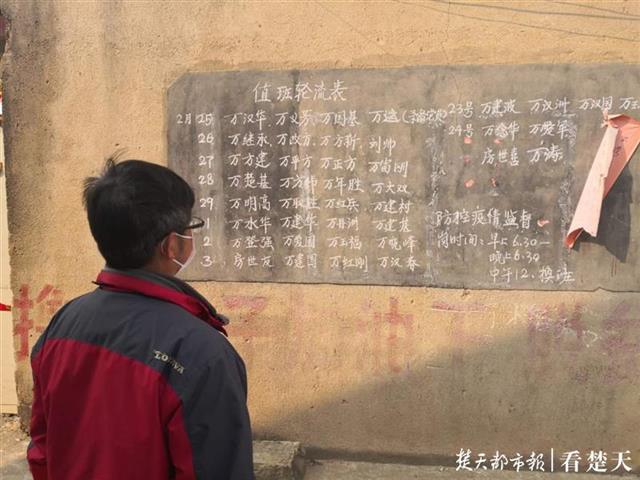 值班轮流表
2月25 万汉华 万义 万国基 万
26 万继承 万改方 万方新 刘帅
27 万方建 万平方 万正方 万明
28 万楚基 万方 万年胜 万大双
29 万明高 万胜 万红兵 万建村
1 万永华 万建华 万洲 万建基
2 万登强 万爱国 万玉福 万晓峰
3 房世友 万建国 万红刚 万汉春
23号 万建波 万汉洲 万汉国 万
24号 万华 万爱军
房世喜 万涛
防控疫情监督
岗时间:早上6.30—
晚上6.30
中午12.换
子 油
TOREAD
楚天都市报 看楚天